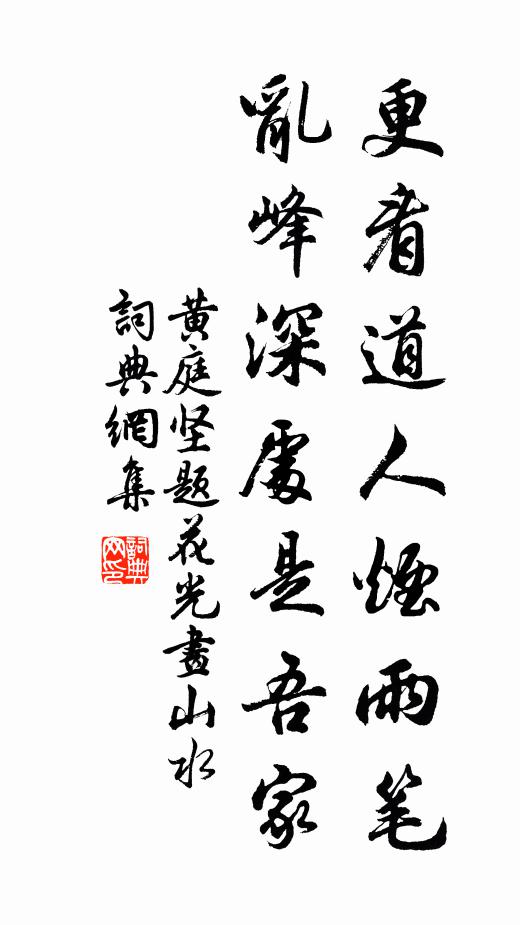 更看道人煙雨笔
亂峰深處是吾家
黄庭坚题花光畫山水
詞典網集
詞典网印